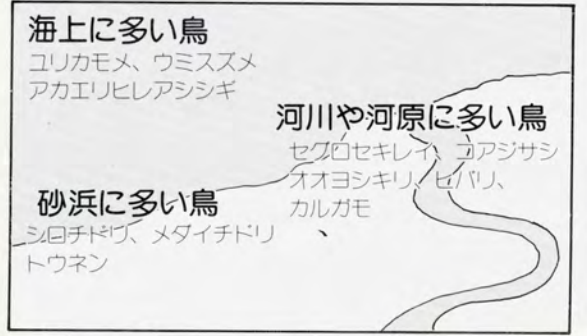 海上に多い鳥
ユリカモメ、ウミスズメ
アカエリヒレアシシギ
河川や河原に多い鳥
セグロセキレイ、コアジサシ
オオヨシキリ、ヒバリ、
カルガモ
砂浜に多い鳥
シロチドリ、メダイチドリ
トウネン